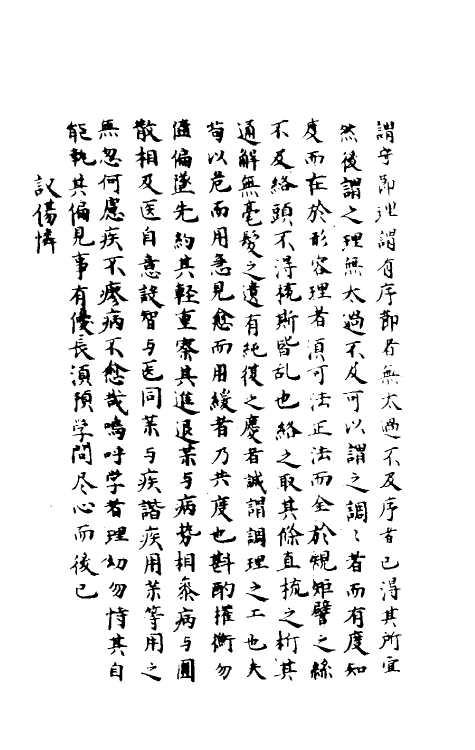 謂守節理謂有序節者無太過不及序者已得其所宜
然後謂之理無大過不及可以謂之調〻者而有度知
度而在於形容理者湏可法正法而全於規矩譬之絲
不及絡頭不得梳斯皆乱也絡之取其條直梳之析其
通解無毫髮之遺有純復之慶者誠謂調理之工也夫
苟以危而用急見愈而用緩者乃共度也斟酌權衡勿
偏遂先約其軽重察其進退茶与病勢相叅病与
散相及医自意設智与医同茶与疾諧疾用茶等用之
無忽何慮疾不瘳病不愈㦲嗚呼学者理幼勿恃其自
能執其偏見事有優長湏預学問尽心而後已